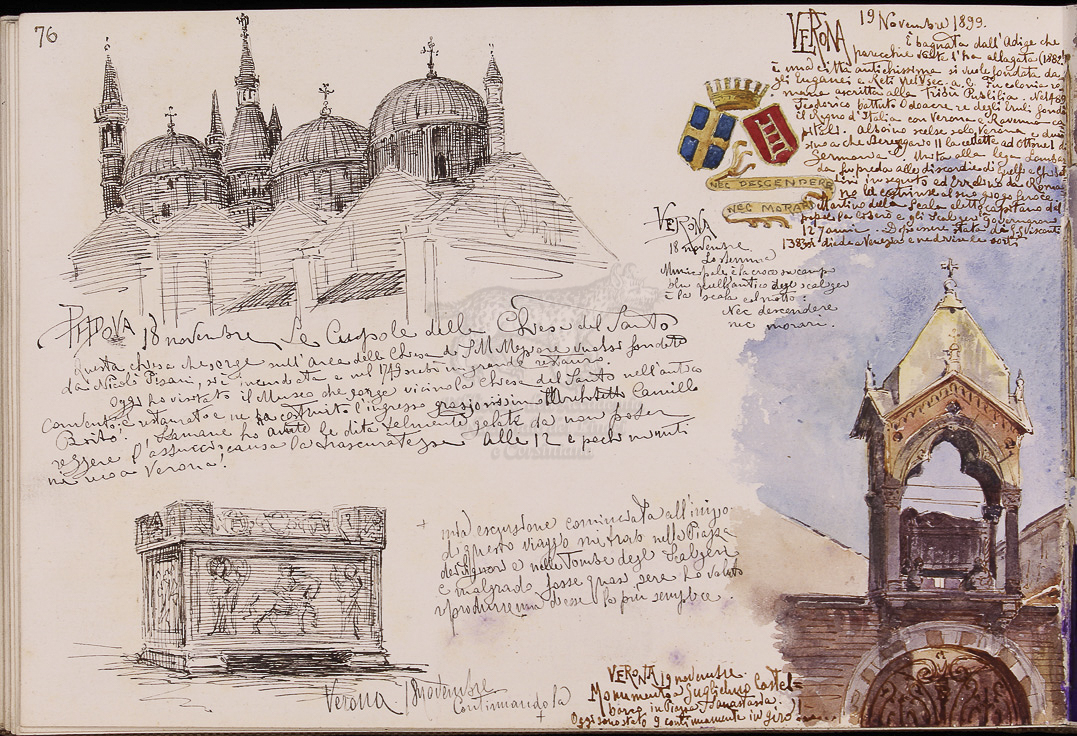 76
PADOVA 18 novembre Le Cupole della Chiesa del Santo
Questa chiesa che sorge sull'area della Chiesa di S. M. Maggiore fondata
da Nicolò Pisani, si incendiata e nel 1749 subì in grande restauro.
Oggi ho visitato il Museo che sorge vicino la Chiesa del Santo nell'antico
Convento, restaurato e ne ha costruito l'ingresso graziosissimo l'Architetto Camillo
Boito. Stamane ho avute le dita talmente gelate da non poter
reggere l'astuccio, causa la trascuratezza. Alle 12 e pochi minuti
mi reco a Verona.
mia escursione cominciata all'inizio
di questo viaggio mi trovo nella Piazza
dei Signori e nelle Tombe degli Scaligeri
e malgrado fosse quasi sera ho voluto
riprodurre una d'esse la più semplice.
Verona 18 novembre
Continuando la
VERONA
19 Novembre 1899.
È bagnata dall'Adige che
parecchie volte l'ha allagata (1882)
è una città antichissima si vuole fondata da
gli Euganei e Reti nel V sec. a. C. Fu colonia ro
mana ascritta alla Tribù Publilia. Nel 489
Teodorico battuto Odoacre re degli Eruli fondò
il Regno d'Italia con Verona e Ravenna ca
pitali. Alboino scelse solo Verona e
che Berengario II la cedette ad Ottone I di
Germania. Unita alla lega Lombar
da fu preda alle discordie di guelfi e ghibel
lini in seguito ed Ezzelino da Roma
no la costrinse al suo giogo feroce
Martino della Scala eletto capitano del
popolo la e gli Scaligeri governaron
127 anni. Dopo essere stata di G. Visconti
si diede a Venezia e ne divise le sorti
NEC DESCENDERE
NEC MORARI
VERONA
18 novembre
Lo stemma
Municipale è la croce in campo
blu quell'antico degli scaligeri
è la scala col motto:
Nec descendere
nec morari.
VERONA 19 novembre
Monumento a Guglielmo Castel=
barco in Piazza S. Anastasia.
Oggi sono stato 9 continuamente in giro!